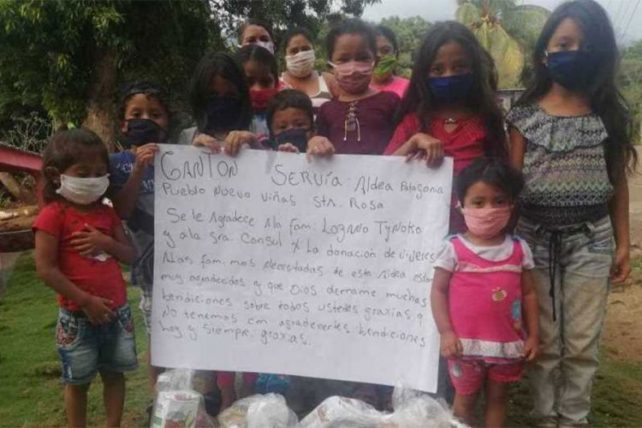 CANTON SERVIA Aldea Patagonia
Pueblo Nuevo Viñas Sta. Rosa
Se le Agradece Ala Fam: Lozano Tynoko
y ala Sra. Consul x La donacion de viveres
ALas fam. mas necesitadas de esta Aldea estan
muy agradecidos y que Dios derrame muchas
bendiciones sobre todos ustedes gracias,
No tenemos cm agradecerles bendiciones
hoy y siempre gracias.